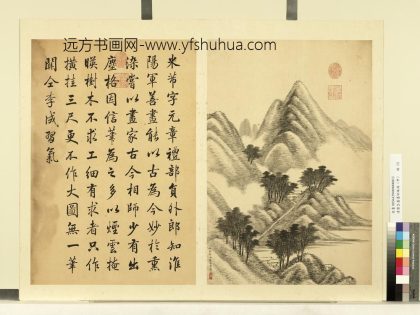 远方书画网-www.yfshuhua.com
米芾字元章禮部員外郎知淮
陽軍善畫能以古為今妙於熏
染嘗以畫家古今相師少有出
塵格因信筆為之多以煙雲掩
映樹木不求工細有求者只作
橫挂三尺更不作大圖無一筆
關仝李成習氣